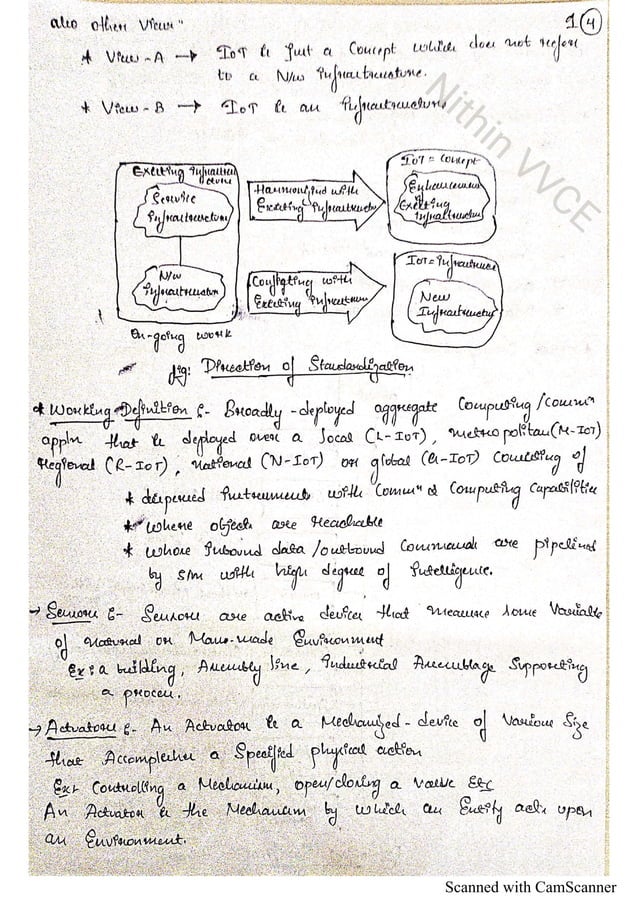 also other Views"
1 4
* View-A → IoT is Just a Concept which does not refer
to a N/w Infrastructure.
* View-B → IoT is an Infrastructure
Nithin VVCE
Existing Infrastructure
Service
Infrastructure
N/w
Infrastructure
On-going work
Harmonized with
Existing Infrastructure
IoT = Concept
Enhancement
of
Existing
Infrastructure
Conflicting with
Existing Infrastructure
IoT = Infrastructure
New
Infrastructure
fig: Direction of Standardization
* Working Definition :- Broadly-deployed aggregate Computing/commⁿ
appln that is deployed over a local (L-IoT), metropolitan (M-IoT)
Regional (R-IoT), national (N-IoT) or global (G-IoT) Consisting of
* dispersed Instruments with Commⁿ & Computing Capabilities
* where objects are Reachable
* whose Inbound data/outbound Commands are pipelined
by s/m with high degree of Intelligence.
→ Sensors :- Sensors are active devices that measure some Variable
of natural or Man-made Environment
Ex: a building, Assembly line, Industrial Assemblage Supporting
a process.
→ Actuators :- An Actuator is a Mechanized-device of Various Size
that Accomplishes a Specified physical action
Ex: Controlling a Mechanism, open/closing a Valve Etc
An Actuator is the Mechanism by which an Entity acts upon
an Environment.
Scanned with CamScanner